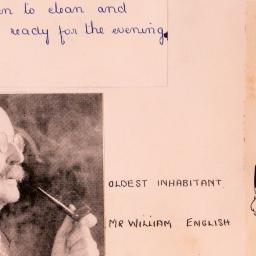 to clean and
ready for the evening.
OLDEST INHABITANT
MR WILLIAM ENGLISH